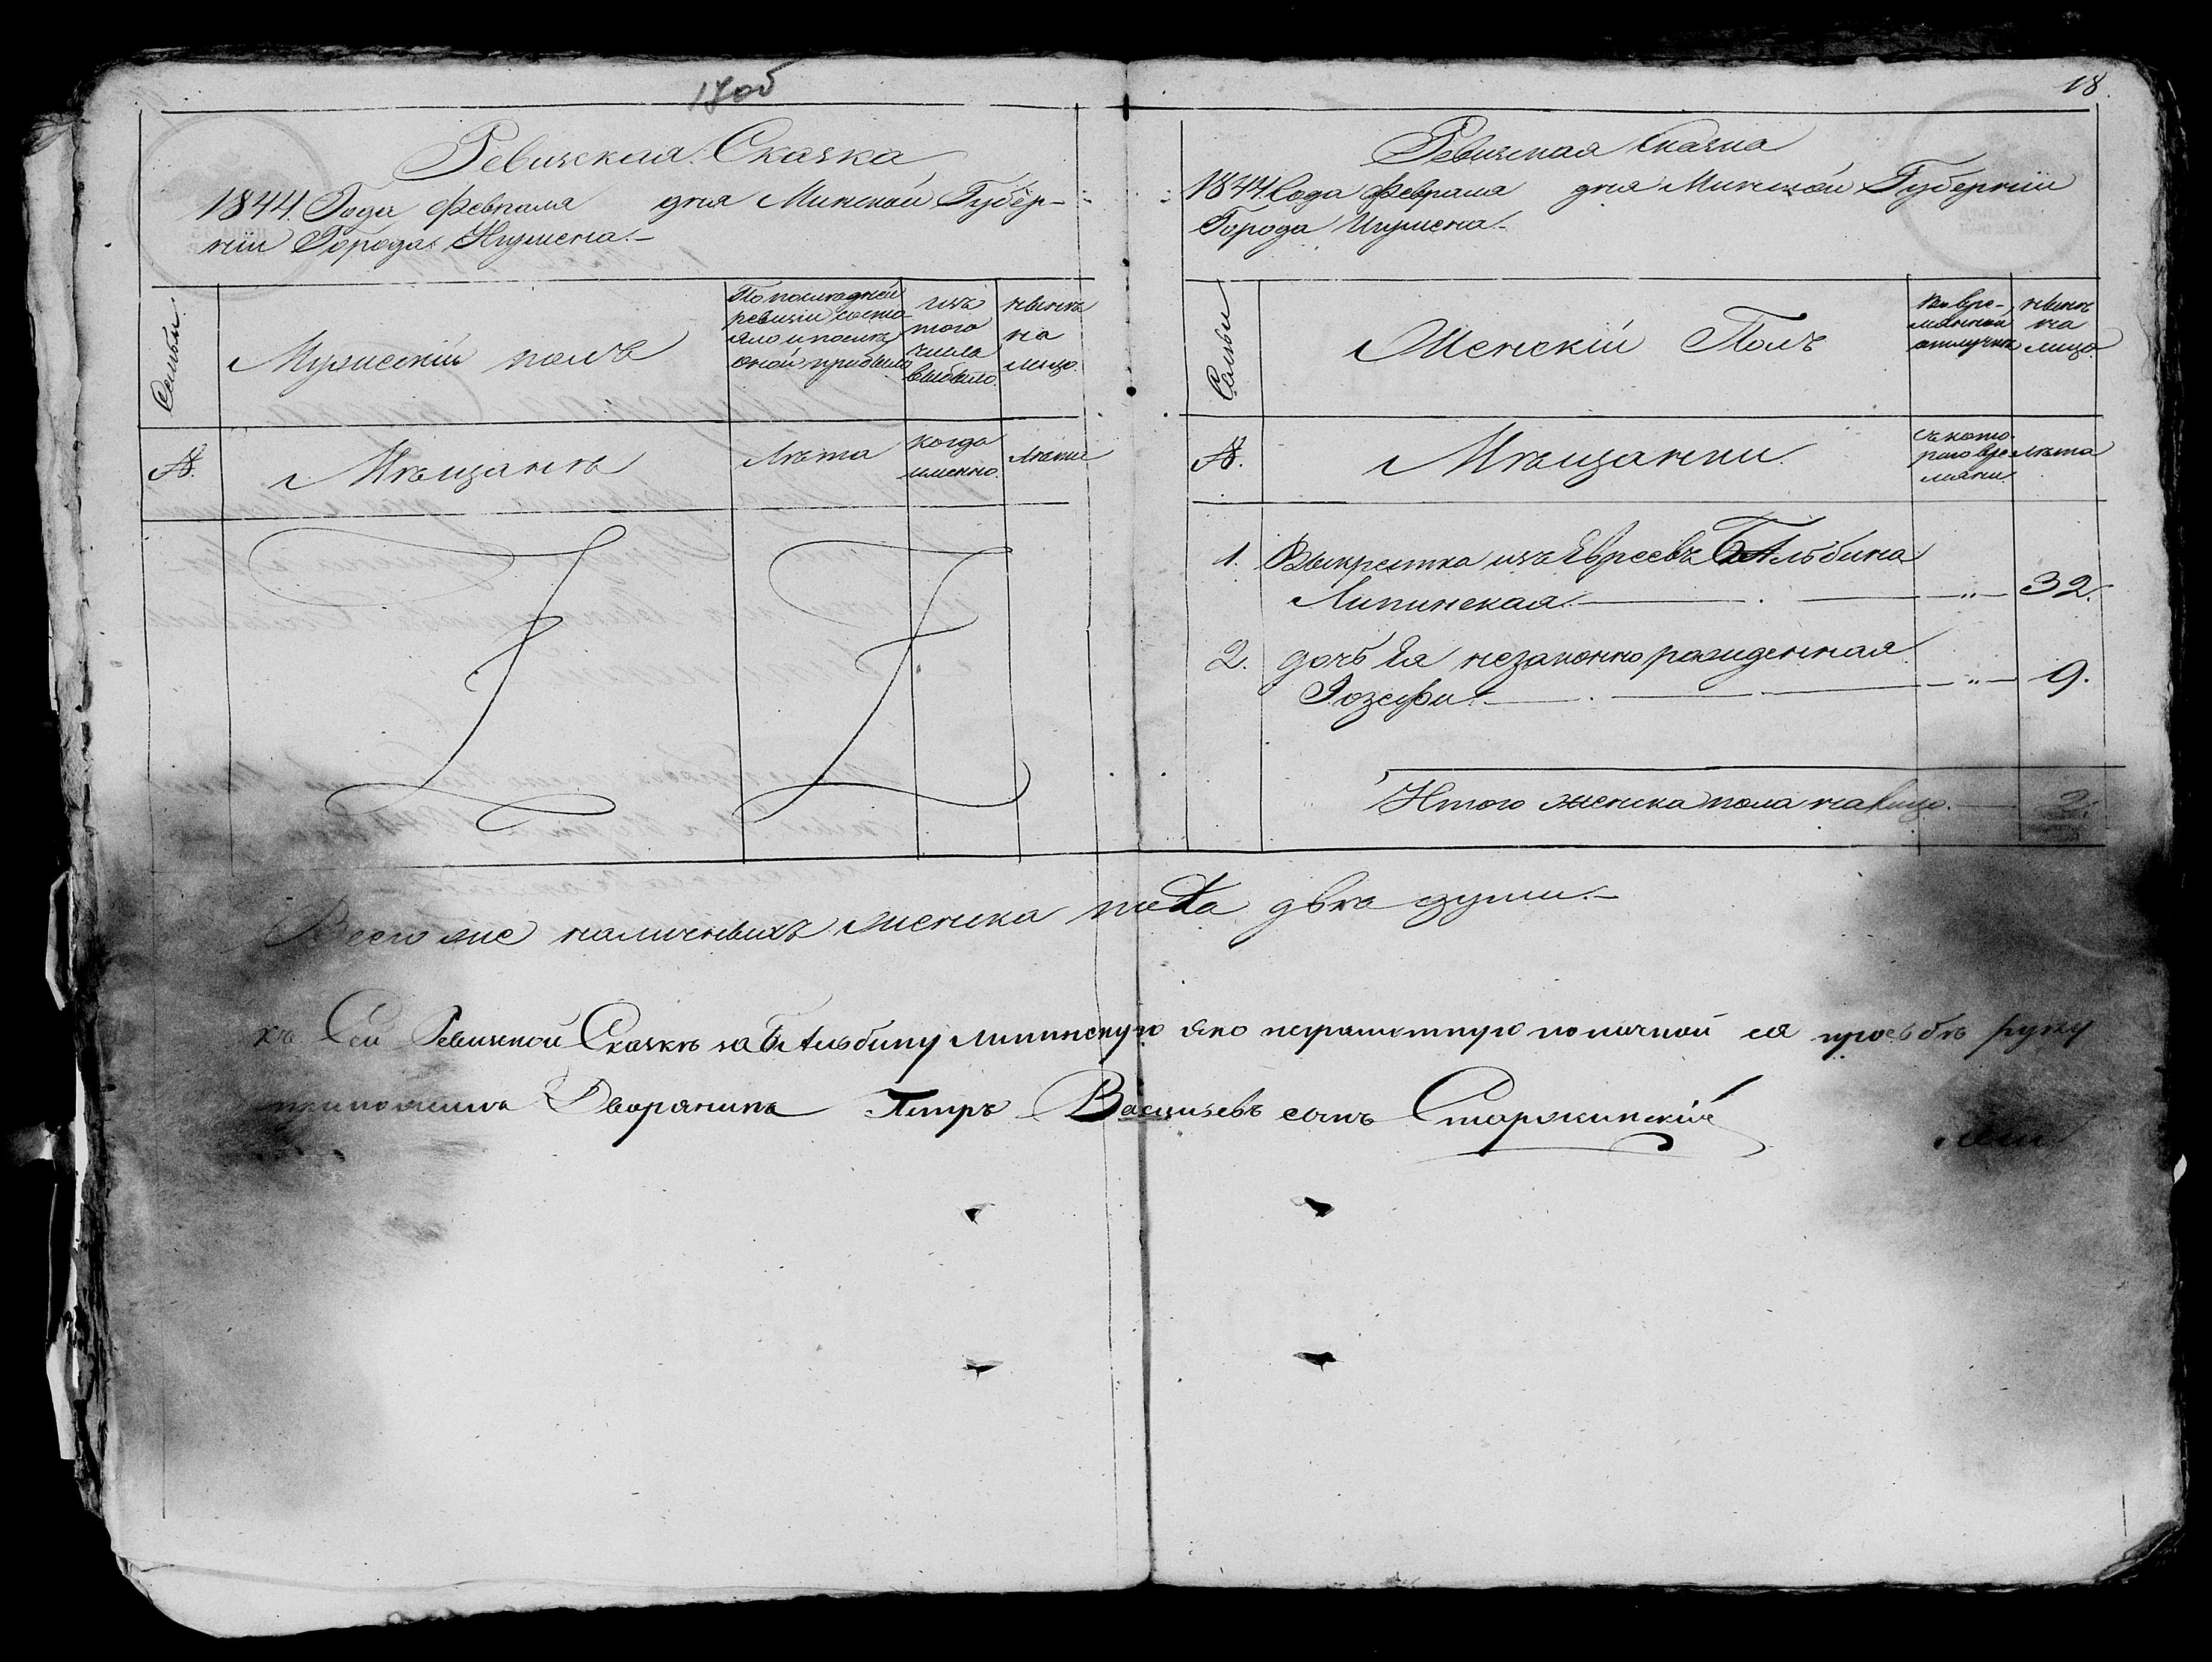 17об
Ревизская Сказка
1844. Года Февраля дня Минской Губер-
ніи Города Игумена.-
Семьи.
Мужескій полъ
По последней
ревизіи состо
яло и после
оной прибыло
изъ
того
числа
выбыло.
ныне
на
лицо.
№.
Мѣщанѣ
Лѣта
когда
именно.
Лѣта
18.
Ревизская Сказка
1844. Года Февраля дня Минской Губерніи
Города Игумена.-
Семьи
Женскій Полъ
во вре-
мянной
отлучкѣ
ныне
на
лицо
№.
Мѣщанки.
съ кото-
раго вре
мяни.
лѣта
1. Выкрестка изъ Евреевъ Альбина
Липинская. — 32.
2. дочь Ея незаконно рожденная
Іозефа. — 9.
Итого женска пола налицо. — 2.
Всего же наличныхъ женска пола две души.-
къ Сей Ревизской Сказкѣ за Альбину Липинскую яко неграмотную по личной ея прозьбѣ руку
приложилъ Дворянинъ Петръ Васильевъ сынъ Старжинскій